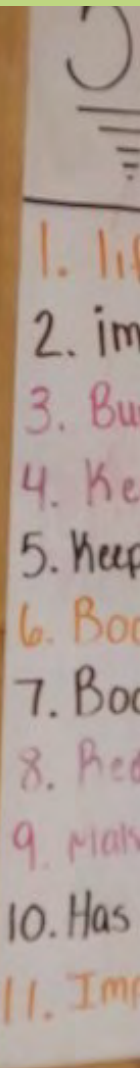 5
1. lif
2. im
3. Bu
4. Ke
5. Keep
6. Boo
7. Boo
8. Red
9. Mak
10. Has
11. Imp